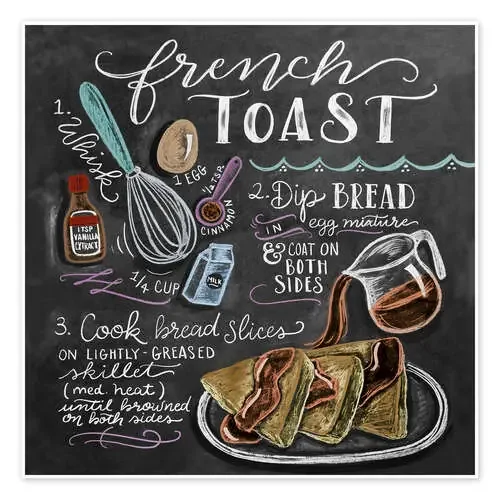 french
TOAST
1. Whisk
1 EGG
1/4 TSP.
CINNAMON
1 TSP
VANILLA
EXTRACT
1/4 CUP
MILK
2. Dip BREAD
IN egg mixture
& COAT ON
BOTH
SIDES
3. Cook bread slices
ON LIGHTLY-GREASED
skillet
(med. heat)
until browned
on both sides